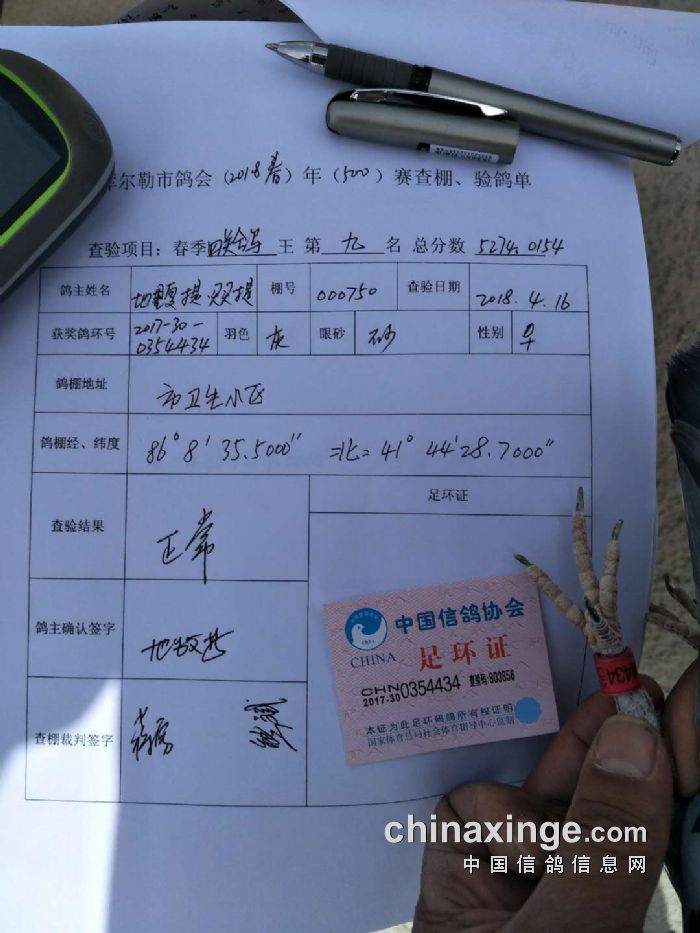 库尔勒市鸽会（2018春）年（500）赛查棚、验鸽单
查验项目：春季 王 第 九 名 总分数 5274.0154
鸽主姓名 棚号 000750 查验日期 2018.4.16
获奖鸽环号 2017-30-0354434 羽色 灰 眼砂 砂 性别
鸽棚地址 市卫生小区
鸽棚经、纬度 86°8'35.5000" 北 41°44'28.7000"
查验结果 正常 足环证
鸽主确认签字
查棚裁判签字
中国信鸽协会
CHINA 足环证
CHN 2017-30 0354434 查验码:803856
本证为此足环码鸽所有权证明
国家体育总局社会体育指导中心监制
4434
chinaxinge.com
中国信鸽信息网